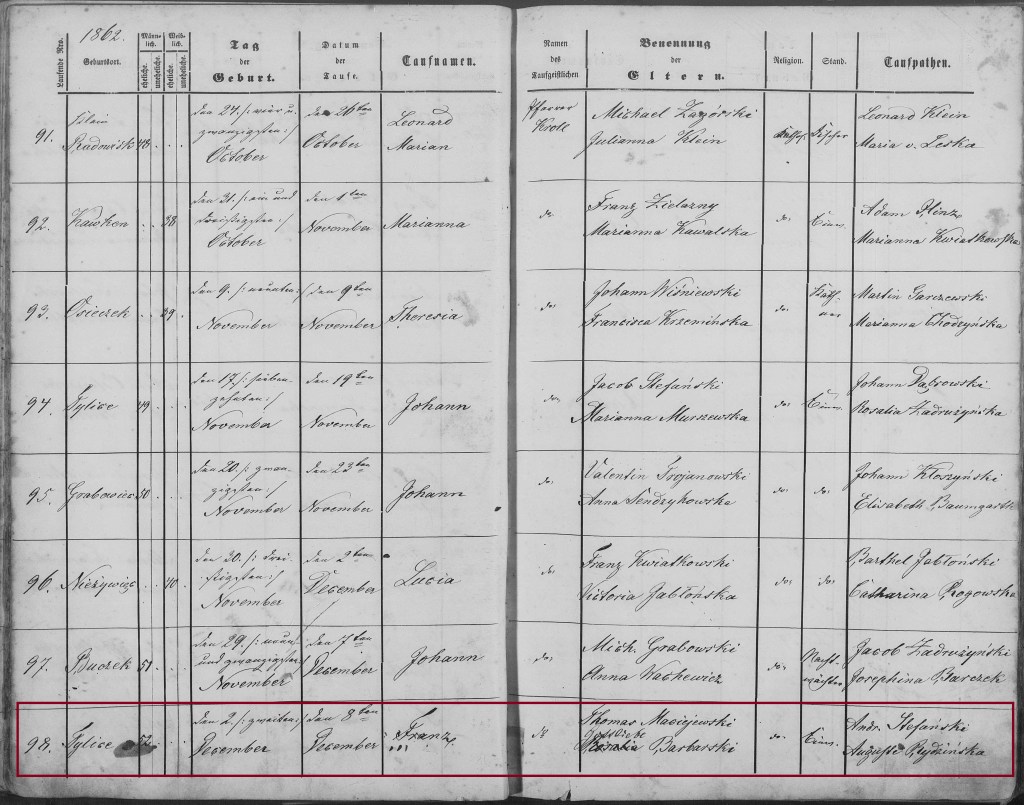 1862.
Laufende Nro.
Geburtsort.
Männlich.
eheliche.
uneheliche.
Weiblich.
eheliche.
uneheliche.
Tag
der
Geburt.
Datum
der
Taufe.
Taufnamen.
Namen
des
Taufgeistlichen
Benennung
der
Eltern.
Religion.
Stand.
Taufpathen.
91. Klein Radowisk 48 . . .
den 24. /: vier u. zwanzigsten :/ October
den 26ten October
Leonard Marian
Pfarrer Krok
Michael Zagórski
Julianna Klein
Fischer
Leonard Klein
Maria v. Leska
92. . . 38 .
den 31. /: ein und dreißigsten :/ October
den 1ten November
Marianna
do
Franz Zielazny
Marianna Kawalska
do. Einw.
Adam Hinz
Marianna Kwiatkowska
93. Osieczek . . 39 .
den 9. /: neunten :/ November
den 9ten November
Theresia
do.
Johann Wiśniewski
Francisca Krzemińska
do.
Martin Garczewski
Marianna Chodzyńska
94. Tylice 49 . . .
den 17. /: siebenzehnten :/ November
den 19ten November
Johann
do.
Jacob Stefański
Marianna Murszewska
do. Einw.
Johann Dąbrowski
Rosalia Zadrużyńska
95. Grabowiec 50 . . .
den 20. /: zwanzigsten :/ November
den 23ten November
Johann
do.
Valentin Trojanowski
Anna Sendzykowska
do. do.
Johann Kłoszyński
Elisabeth Baumgarth
96. Nieżywięc . . 40 .
den 30. /: dreißigsten :/ November
den 2ten December
Lucia
do.
Franz Kwiatkowski
Victoria Jabłońska
do. do.
Barthel Jabłoński
Catharina Rogowska
97. Buczek 51 . . .
den 29. /: neun und zwanzigsten :/ November
den 7ten December
Johann
do.
Mich. Grabowski
Anna Wachewicz
do. Nachtwächter
Jacob Zadrużyński
Josephina Barczek
98. Tylice 52 . . .
den 2. /: zweiten :/ December
den 8ten December
Franz
do
Thomas Maciejewski
Barbarski
do. Einw.
Andr. Stefański
Auguste Rydzińska